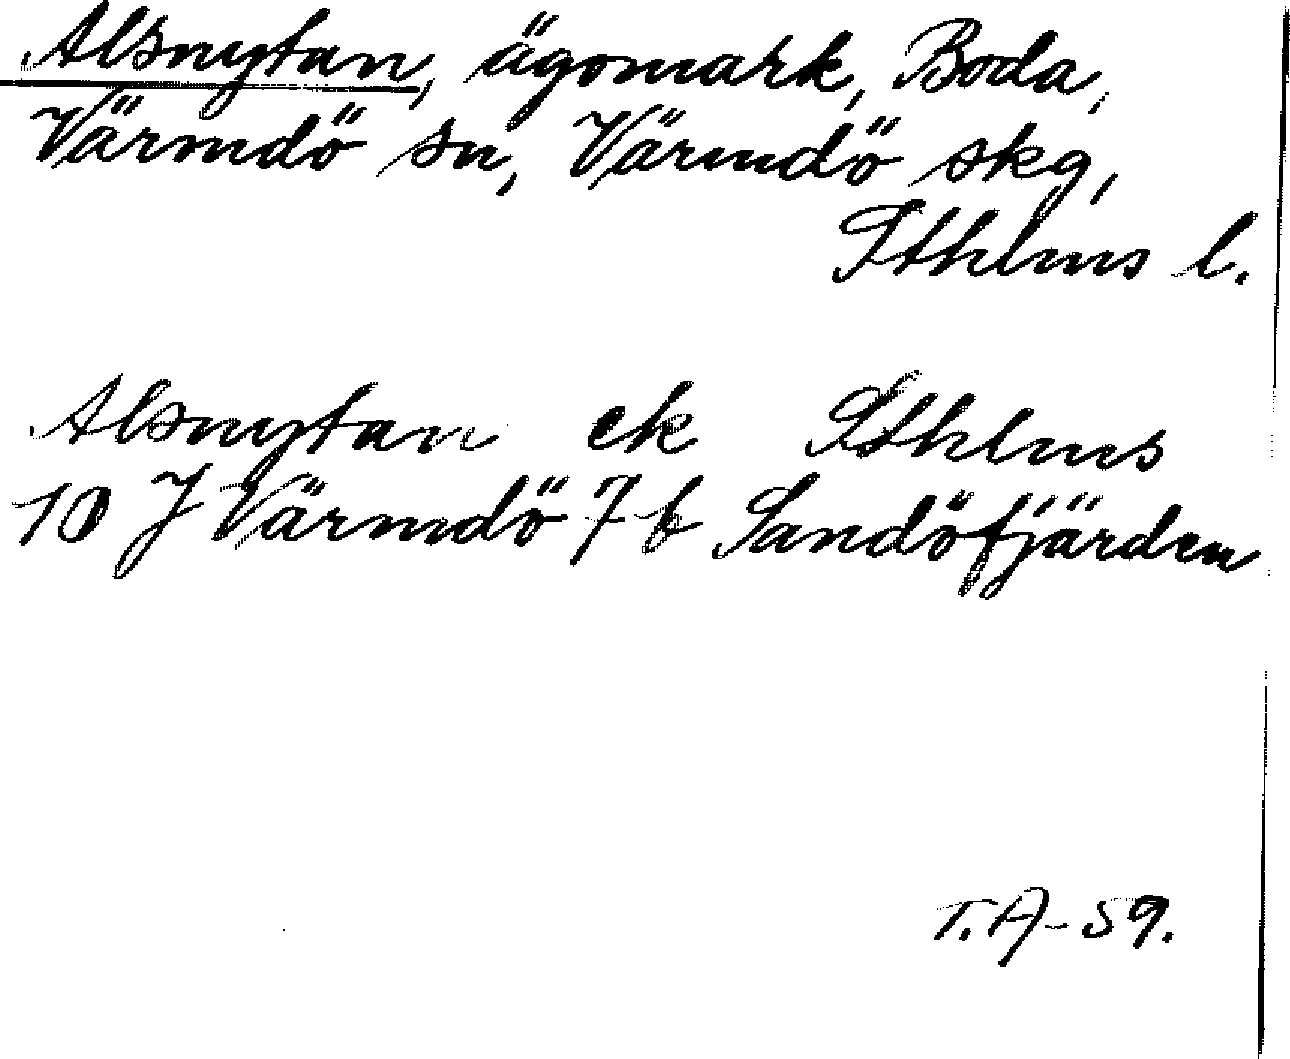 Alsnytan, ägomark, Boda,
Värmdö sn, Värmdö skg,
Sthlms l.
Alsnytan ek Sthlms
10 J Värmdö 7 b Sandöfjärden
T.A-59.